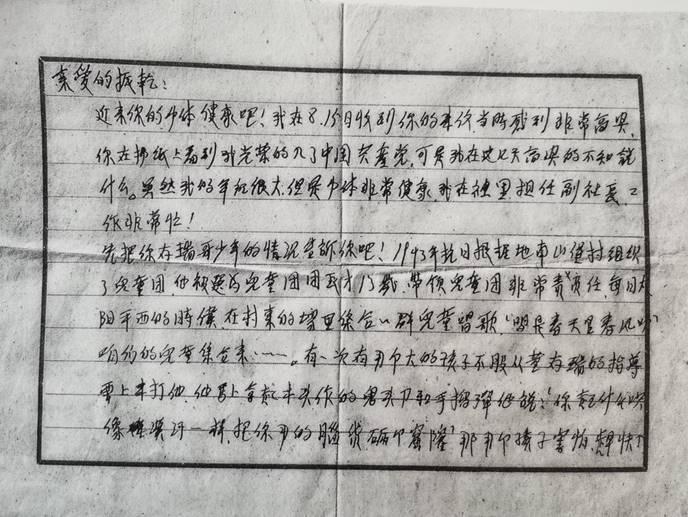 亲爱的振乾:
近来你的身体健康吧!我在8.15日收到你的来信当时感到非常高兴,
你在报纸上看到我光荣的入了中国共产党,可是我在这几天高兴的不知说
什么。虽然我的年纪很大,但是身体非常健康,我在社里担任副社长工
作非常忙!
先把你存瑞哥少年的情况告诉你吧!1943年抗日根据地南山堡村组织
了儿童团,他被选为儿童团团长才13岁,带领儿童团非常责任,每日太
阳平西的时候,在村东的 里集合一群儿童唱歌,"明是春天里春风吹
咱们的儿童集合来……。有一次有那个大的孩子不服从董存瑞的指导
要上来打他,他马上拿起木头作的 和手榴弹他说:你 什么
像 汉奸一样,把你那的脑袋砸个窟窿"那那个孩子害怕,赶快